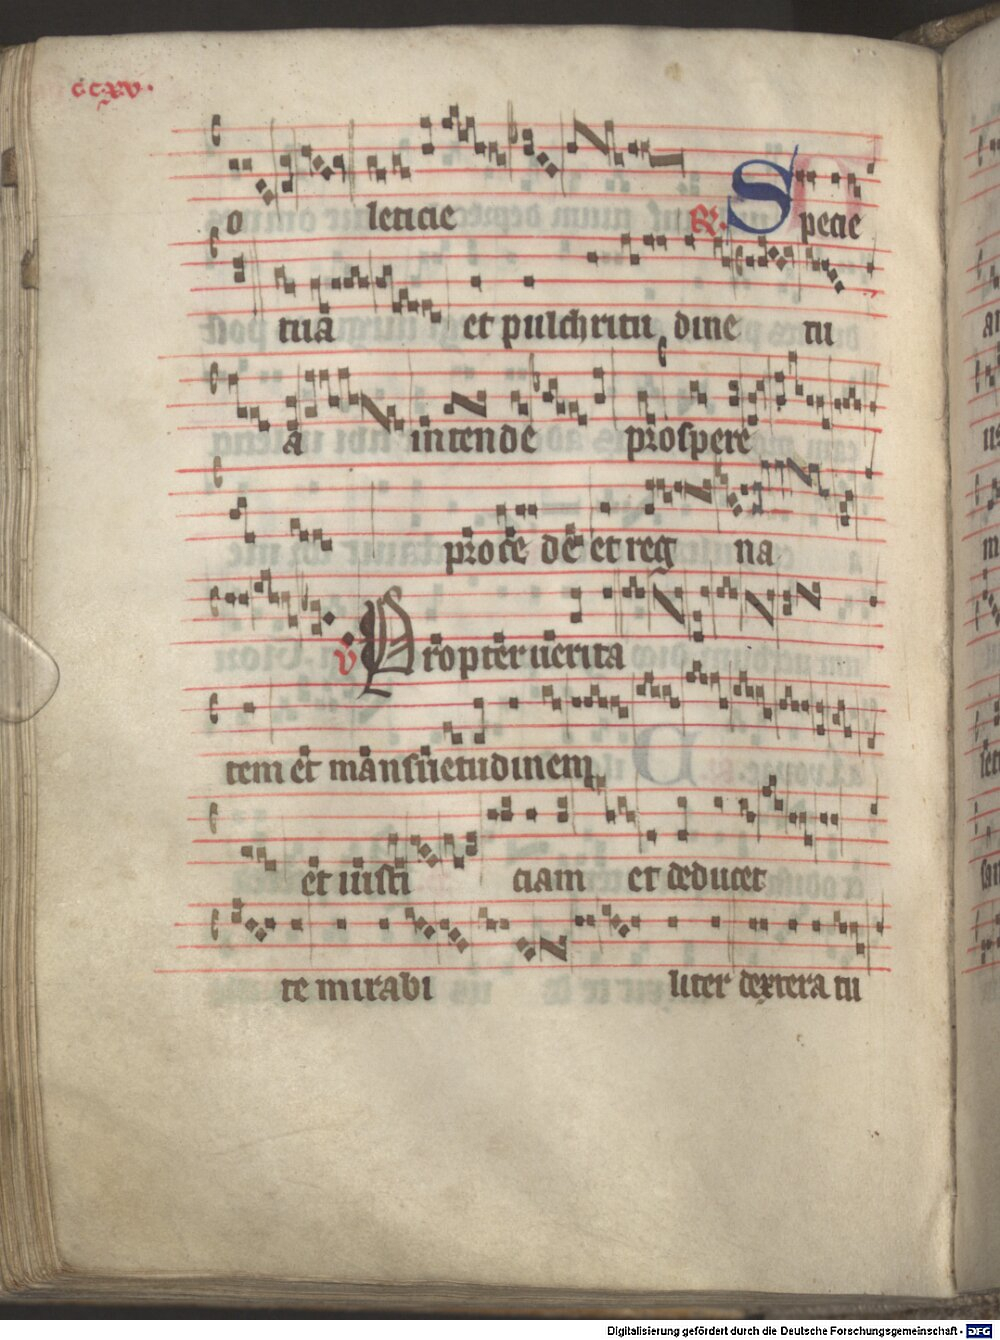 ccxv.
o leticie R. Specie
tua et pulchritu dine tu
a intende prospere
proce de et reg na
v Propter uerita
tem et mansuetudinem
et iusti ciam et deducet
te mirabi liter dextera tu
Digitalisierung gefördert durch die Deutsche Forschungsgemeinschaft - DFG